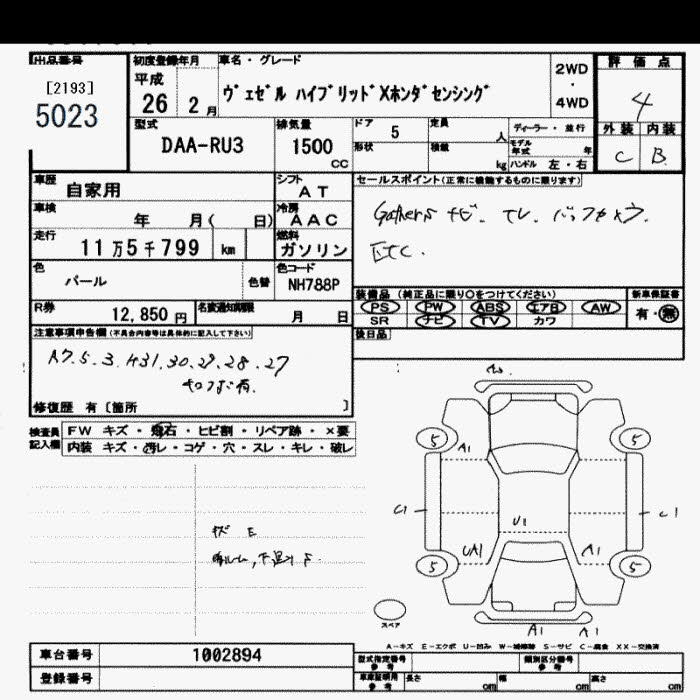 出品番号
[2193]
5023
初度登録年月
平成
26 2月
車名・グレード
ヴェゼル ハイブリッドXホンダセンシング
2WD
・
4WD
評価点
4
外装 内装
C B
型式
DAA-RU3
排気量
1500
CC
ドア 5
定員
人
形状
積載
kg
ディーラー・並行
モデル年式 年
ハンドル 左・右
車歴
自家用
シフト
AT
車検
年 月( 日)
冷房
AAC
走行
11万5千799 km
燃料
ガソリン
色
パール
色替
色コード
NH788P
R券
12,850円
名変通知期限
月 日
セールスポイント(正常に機能するものに限ります)
Gathers ナビ. TV. バックカメラ.
ETC.
装備品 (純正品に限り○をつけてください)
PS PW ABS エアB AW
SR ナビ TV カワ
新車保証書
有・無
後日品
注意事項申告欄(不具合内容等は具体的に記入して下さい)
R7.5.3. H31.30.29.28.27
キロク簿有.
修復歴 有〔箇所 〕
検査員記入欄
FW キズ・飛石・ヒビ割・リペア跡・×要
内装 キズ・汚レ・コゲ・穴・スレ・キレ・破レ
キズ E
5
5
5
5
A1
C1
C1
U1
UA1
A1
A1 A1
スペア
A-キズ E-エクボ U-凹み W-補修跡 S-サビ C-腐食 XX-交換済
車台番号 1002894
登録番号
型式指定番号
参考
類別区分番号
参考
車庫証明用
参考
長さ cm
幅 cm
高さ cm